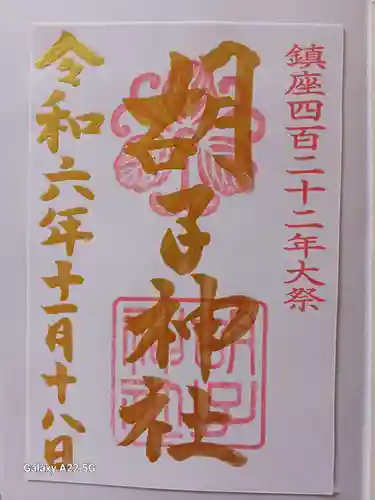 鎮座四百二十二年大祭
胡子神社
令和六年十一月十八日
胡子神社
Galaxy A22 5G